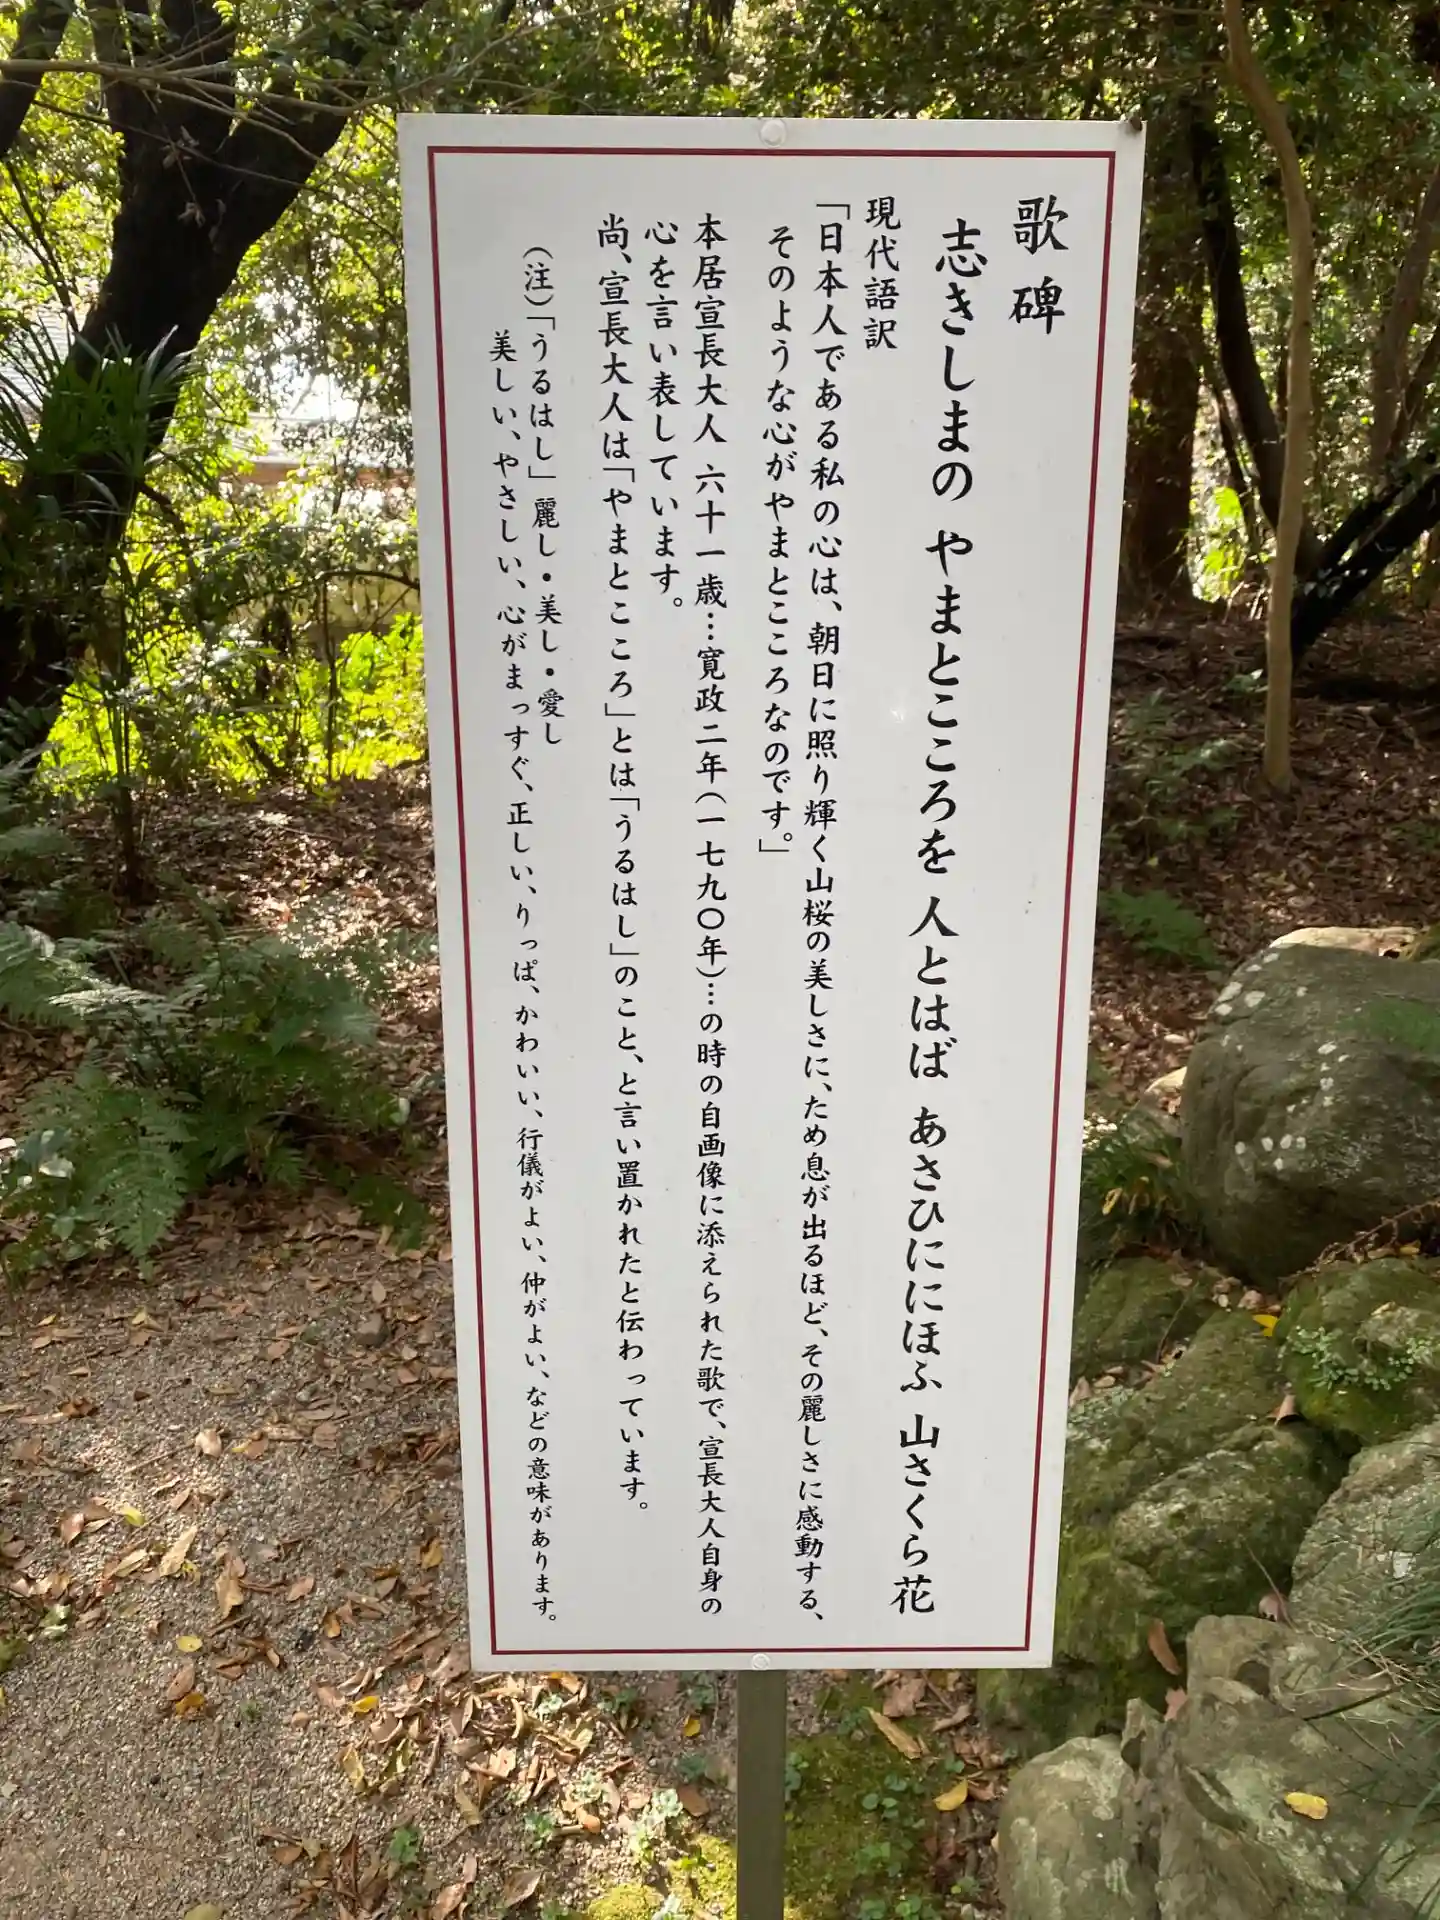 歌碑
志きしまの やまとこころを 人とはば あさひににほふ 山さくら花
現代語訳
「日本人である私の心は、朝日に照り輝く山桜の美しさに、ため息が出るほど、その麗しさに感動する、
そのような心がやまとこころなのです。」
本居宣長大人 六十一歳…寛政二年(一七九〇年)…の時の自画像に添えられた歌で、宣長大人自身の
心を言い表しています。
尚、宣長大人は「やまとこころ」とは「うるはし」のこと、と言い置かれたと伝わっています。
(注)「うるはし」麗し・美し・愛し
美しい、やさしい、心がまっすぐ、正しい、りっぱ、かわいい、行儀がよい、仲がよい、などの意味があります。